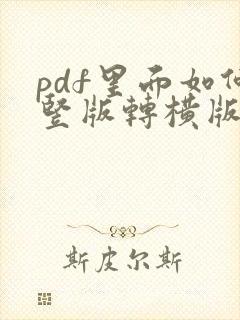 pdf里而如何
竖版轉橫版
斯皮尔斯